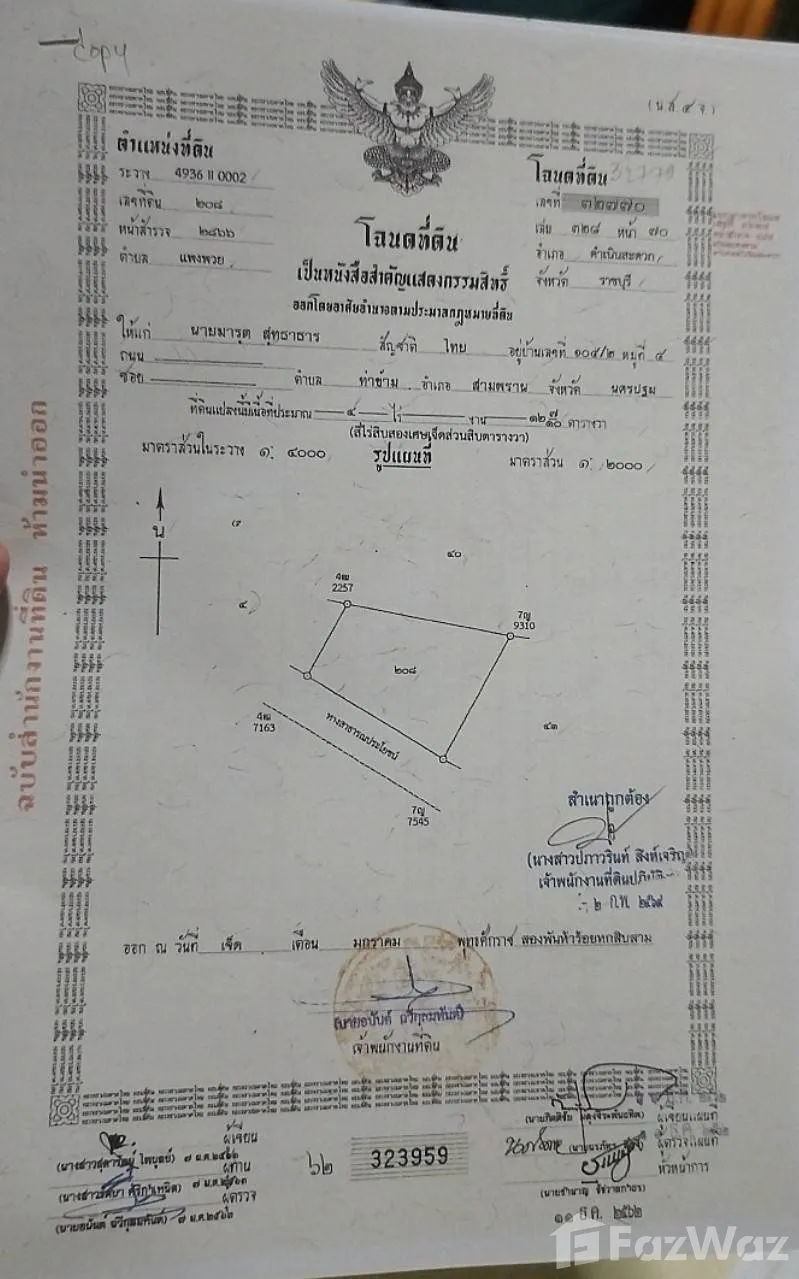 copy
(น.ส.๔ จ.)
ตำแหน่งที่ดิน
ระวาง 4936 II 0002
เลขที่ดิน ๒๐๘
หน้าสำรวจ ๒๘๖๖
ตำบล แพงพวย
โฉนดที่ดิน
เลขที่ ๓๒๗๗๐
เล่ม ๓๒๘ หน้า ๗๐
อำเภอ ดำเนินสะดวก
จังหวัด ราชบุรี
โฉนดที่ดิน
เป็นหนังสือสำคัญแสดงกรรมสิทธิ์
ออกโดยอาศัยอำนาจตามประมวลกฎหมายที่ดิน
ให้แก่ นายมารุต สุทธาธาร สัญชาติ ไทย อยู่บ้านเลขที่ ๑๐๔/๒ หมู่ที่ ๔
ถนน
ซอย ตำบล ท่าข้าม อำเภอ สามพราน จังหวัด นครปฐม
ที่ดินแปลงนี้มีเนื้อที่ประมาณ ๔ ไร่ งาน ๑๒ ๗/๑๐ ตารางวา
(สี่ไร่สิบสองเศษเจ็ดส่วนสิบตารางวา)
มาตราส่วนในระวาง ๑: ๔๐๐๐ รูปแผนที่ มาตราส่วน ๑: ๒๐๐๐
น
๔๐
๔
4ฒ
2257
7ญ
9310
๒๐๘
๔๓
ทางสาธารณประโยชน์
4ฒ
7163
7ญ
7545
ฉบับสำนักงานที่ดิน ห้ามนำออก
สำเนาถูกต้อง
(นางสาวปภาวรินท์ สิงห์เจริญ)
เจ้าพนักงานที่ดินปฏิบัติ
๒ ก.พ. ๒๕๖๙
ออก ณ วันที่ เจ็ด เดือน มกราคม พุทธศักราช สองพันห้าร้อยหกสิบสาม
(นายอนันต์ ถวิกุลมหันต์)
เจ้าพนักงานที่ดิน
ผู้เขียน
ผู้ทาน
๗ ม.ค.๒๕๖๓
ผู้ตรวจ
๖๒
323959
ผู้เขียนแผนที่
ผู้ตรวจแผนที่
หัวหน้าการ
๑๑ ธ.ค. ๒๕๖๒
FazWaz